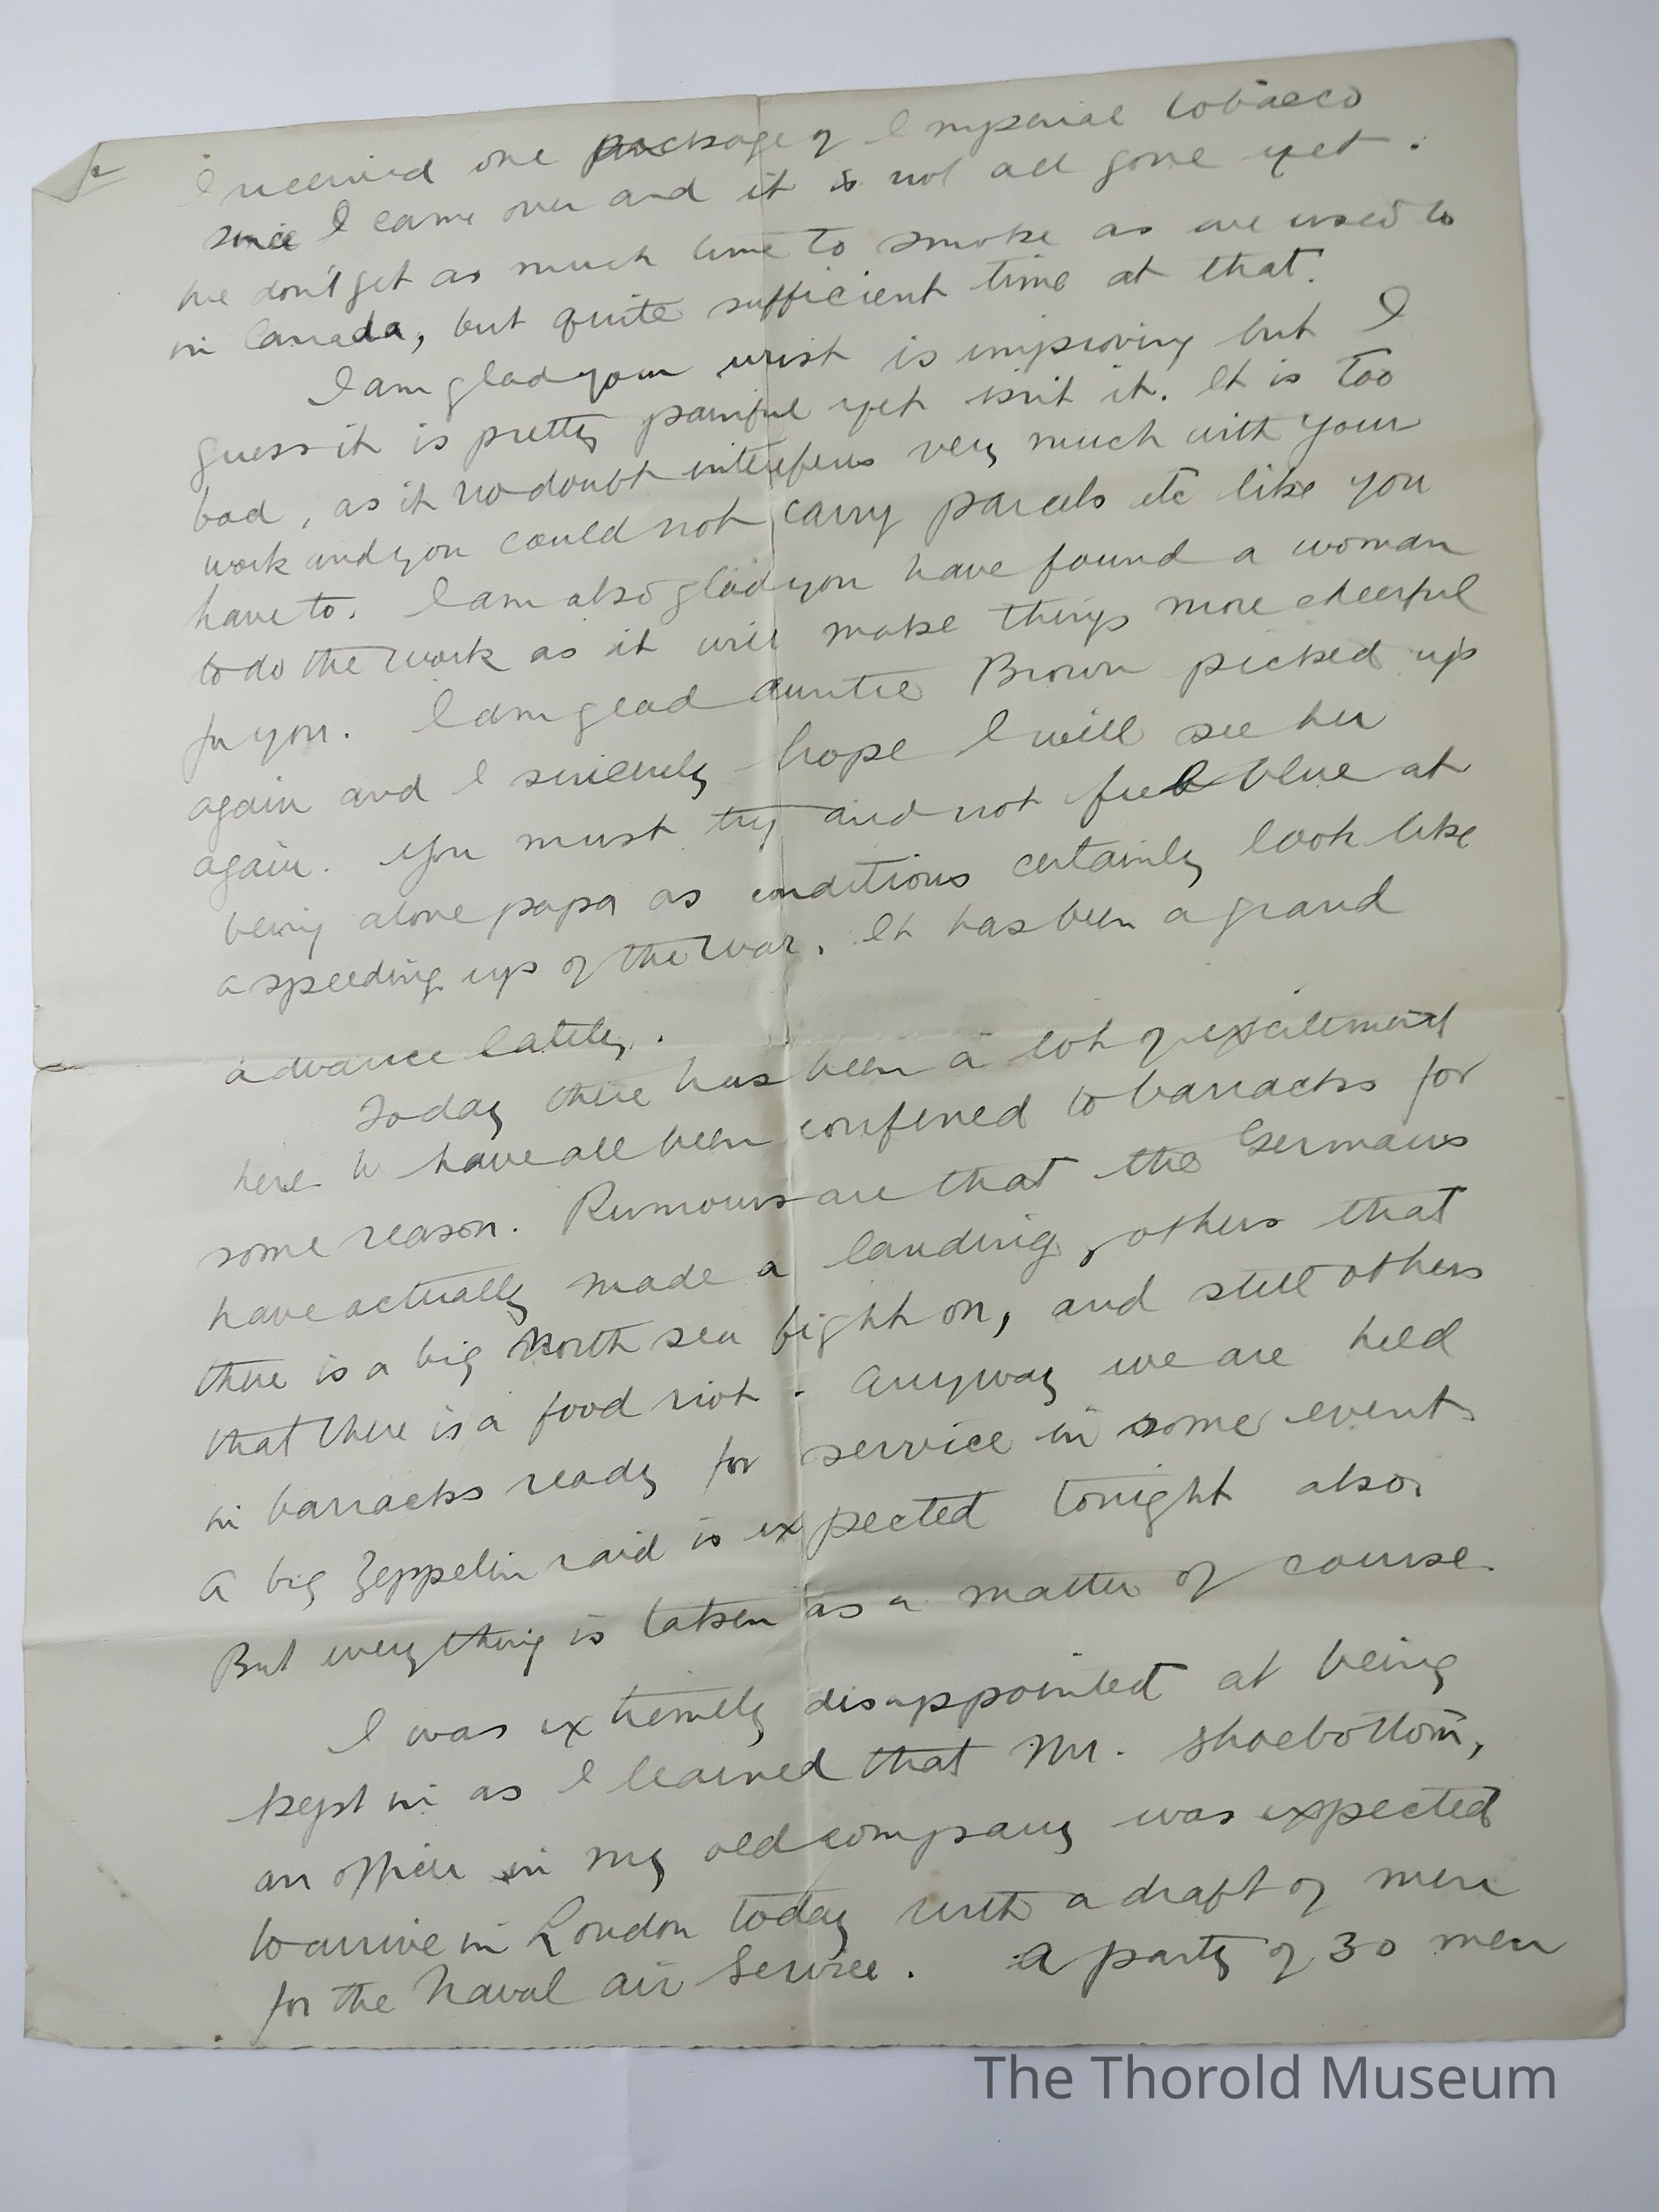 I received one package of Imperial tobacco
since I came over and it is not all gone yet.
We don't get as much time to smoke as we used to
in Canada, but quite sufficient time at that.
I am glad your wrist is improving but I
guess it is pretty painful yet isn't it. It is too
bad, as it no doubt interferes very much with your
work and you could not carry parcels etc like you
have to. I am also glad you have found a woman
to do the work as it will make things more cheerful
for you. I am glad Auntie Brown picked up
again and I sincerely hope I will see her
again. You must try and not feel blue at
being alone papa as conditions certainly look like
a speeding up of the war. It has been a grand
advance lately.
Today there has been a lot of excitement
here have all been confined to barracks for
some reason. Rumours are that the Germans
have actually made a landing, others that
there is a big North sea fight on, and still others
that there is a food riot. Anyway we are held
in barracks ready for service in some event.
A big Zeppelin raid is expected tonight also.
But everything is taken as a matter of course.
I was extremely disappointed at being
kept in as I learned that Mr. Shoebottom,
an officer in my old company was expected
to arrive in London today with a draft of men
for the Naval air Service. A party of 30 men
The Thorold Museum